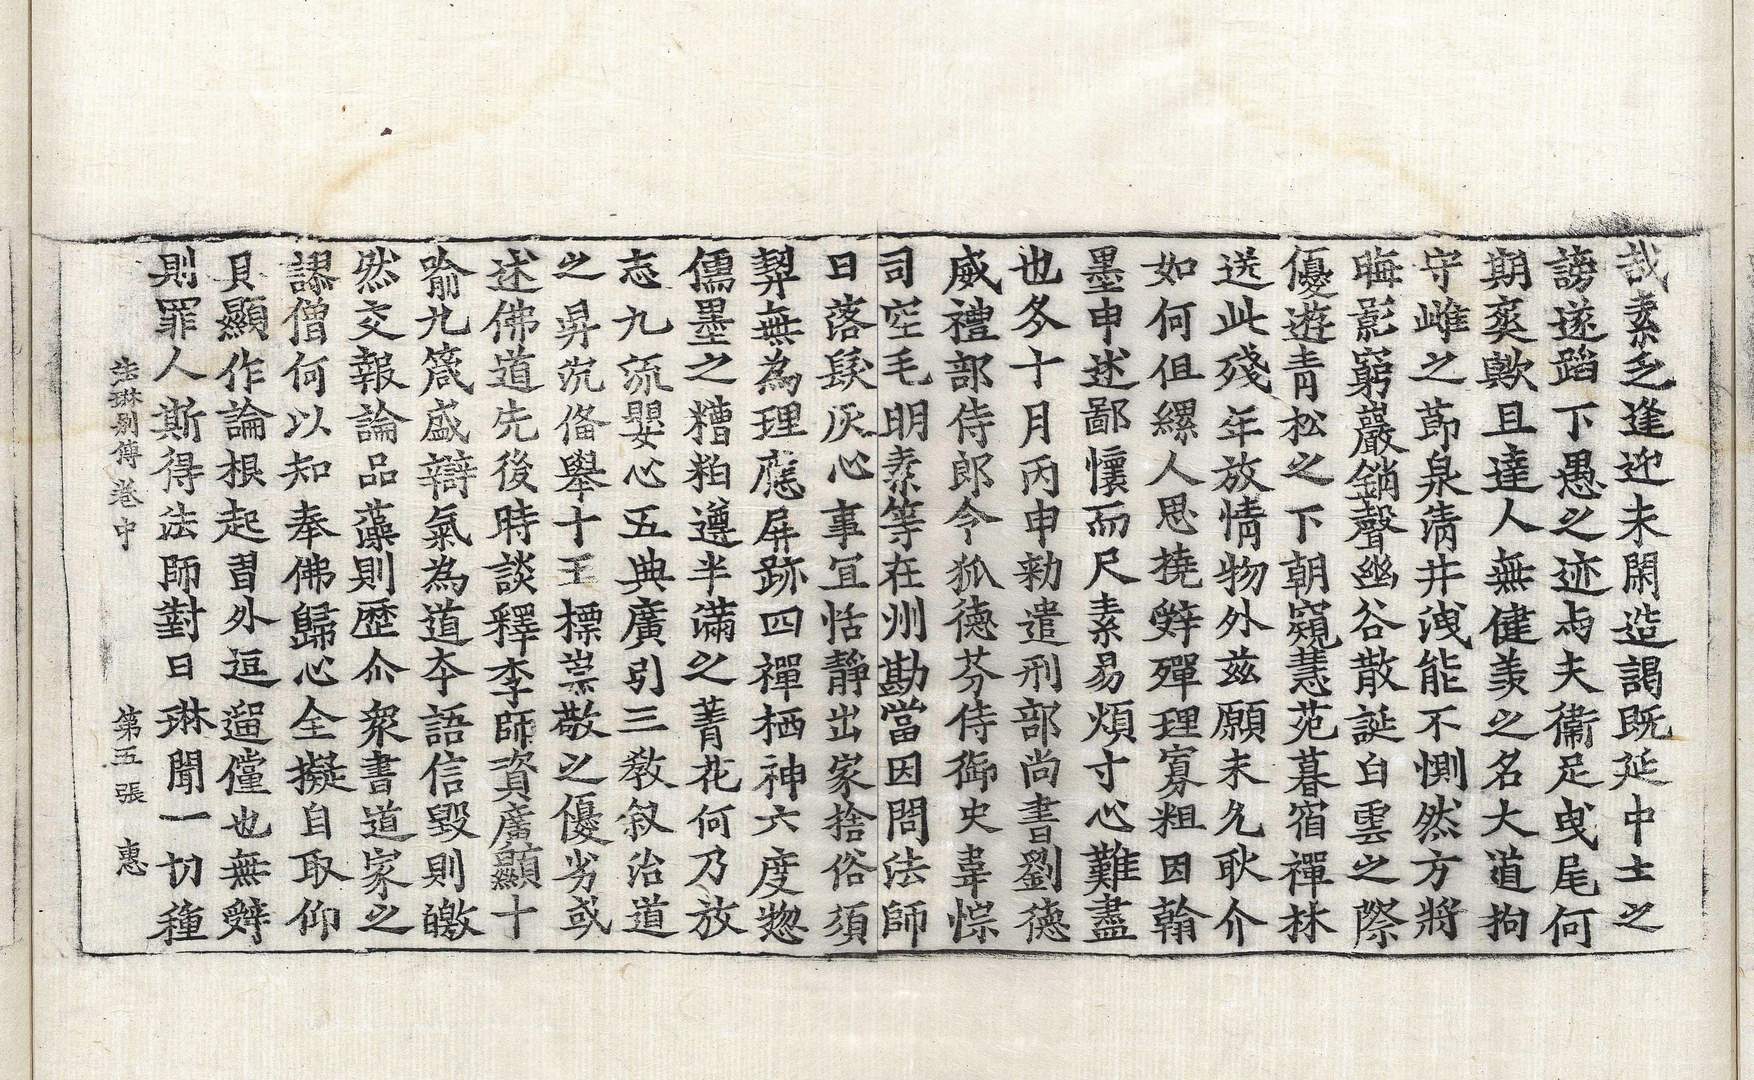 哉素乏逢迎未閑造謁既延中士之
謗遂蹈下愚之迹為夫衞足曳尾何
期爽歟且達人無健羡之名大道拘
守雌之莭泉淸井洩能不惻然方將
晦影窮巖銷聲幽谷散誕白雲之際
優遊青松之下朝窺慧苑暮宿禪林
送此殘年放情物外兹願未允耿介
如何但縲人思撓辤殫理寡粗因翰
墨申述鄙懷而尺素易煩寸心難盡
也冬十月丙申勑遣刑部尚書劉德
威禮部侍郎令狐德芬侍御史韋悰
司空毛明素等在州勘當因問法師
日落髮灰心事宜恬靜出家捨俗須
契無為理應屏跡四禪栖神六度惣
儒墨之糟粕遵半滿之菁花何乃放
志九流嬰心五典廣引三教叙治道
之昇沉偹舉十王標崇敬之優劣或
述佛道先後時談釋李師資廣顯十
喻九箴盛辯氣為道夲語信毀則皦
然交報論品藻則歷尒衆書道家之
謬僧何以知奉佛歸心全擬自取仰
具顯作論根起胃外逗遛儻也無辤
則罪人斯得法師對曰琳聞一切種
法琳别傳卷中　第五張　惠